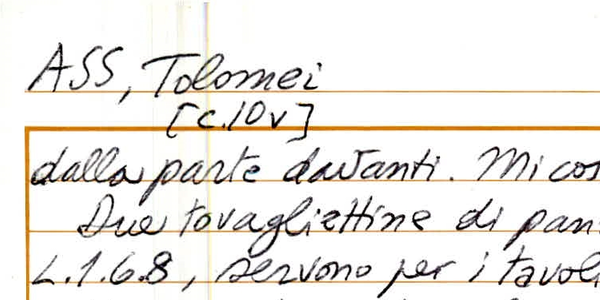 ASS, Tolomei
[c.10v]
dalla parte davanti. Mi cos
Due tovagliettine di pan
L.1.6.8, servono per i tavol